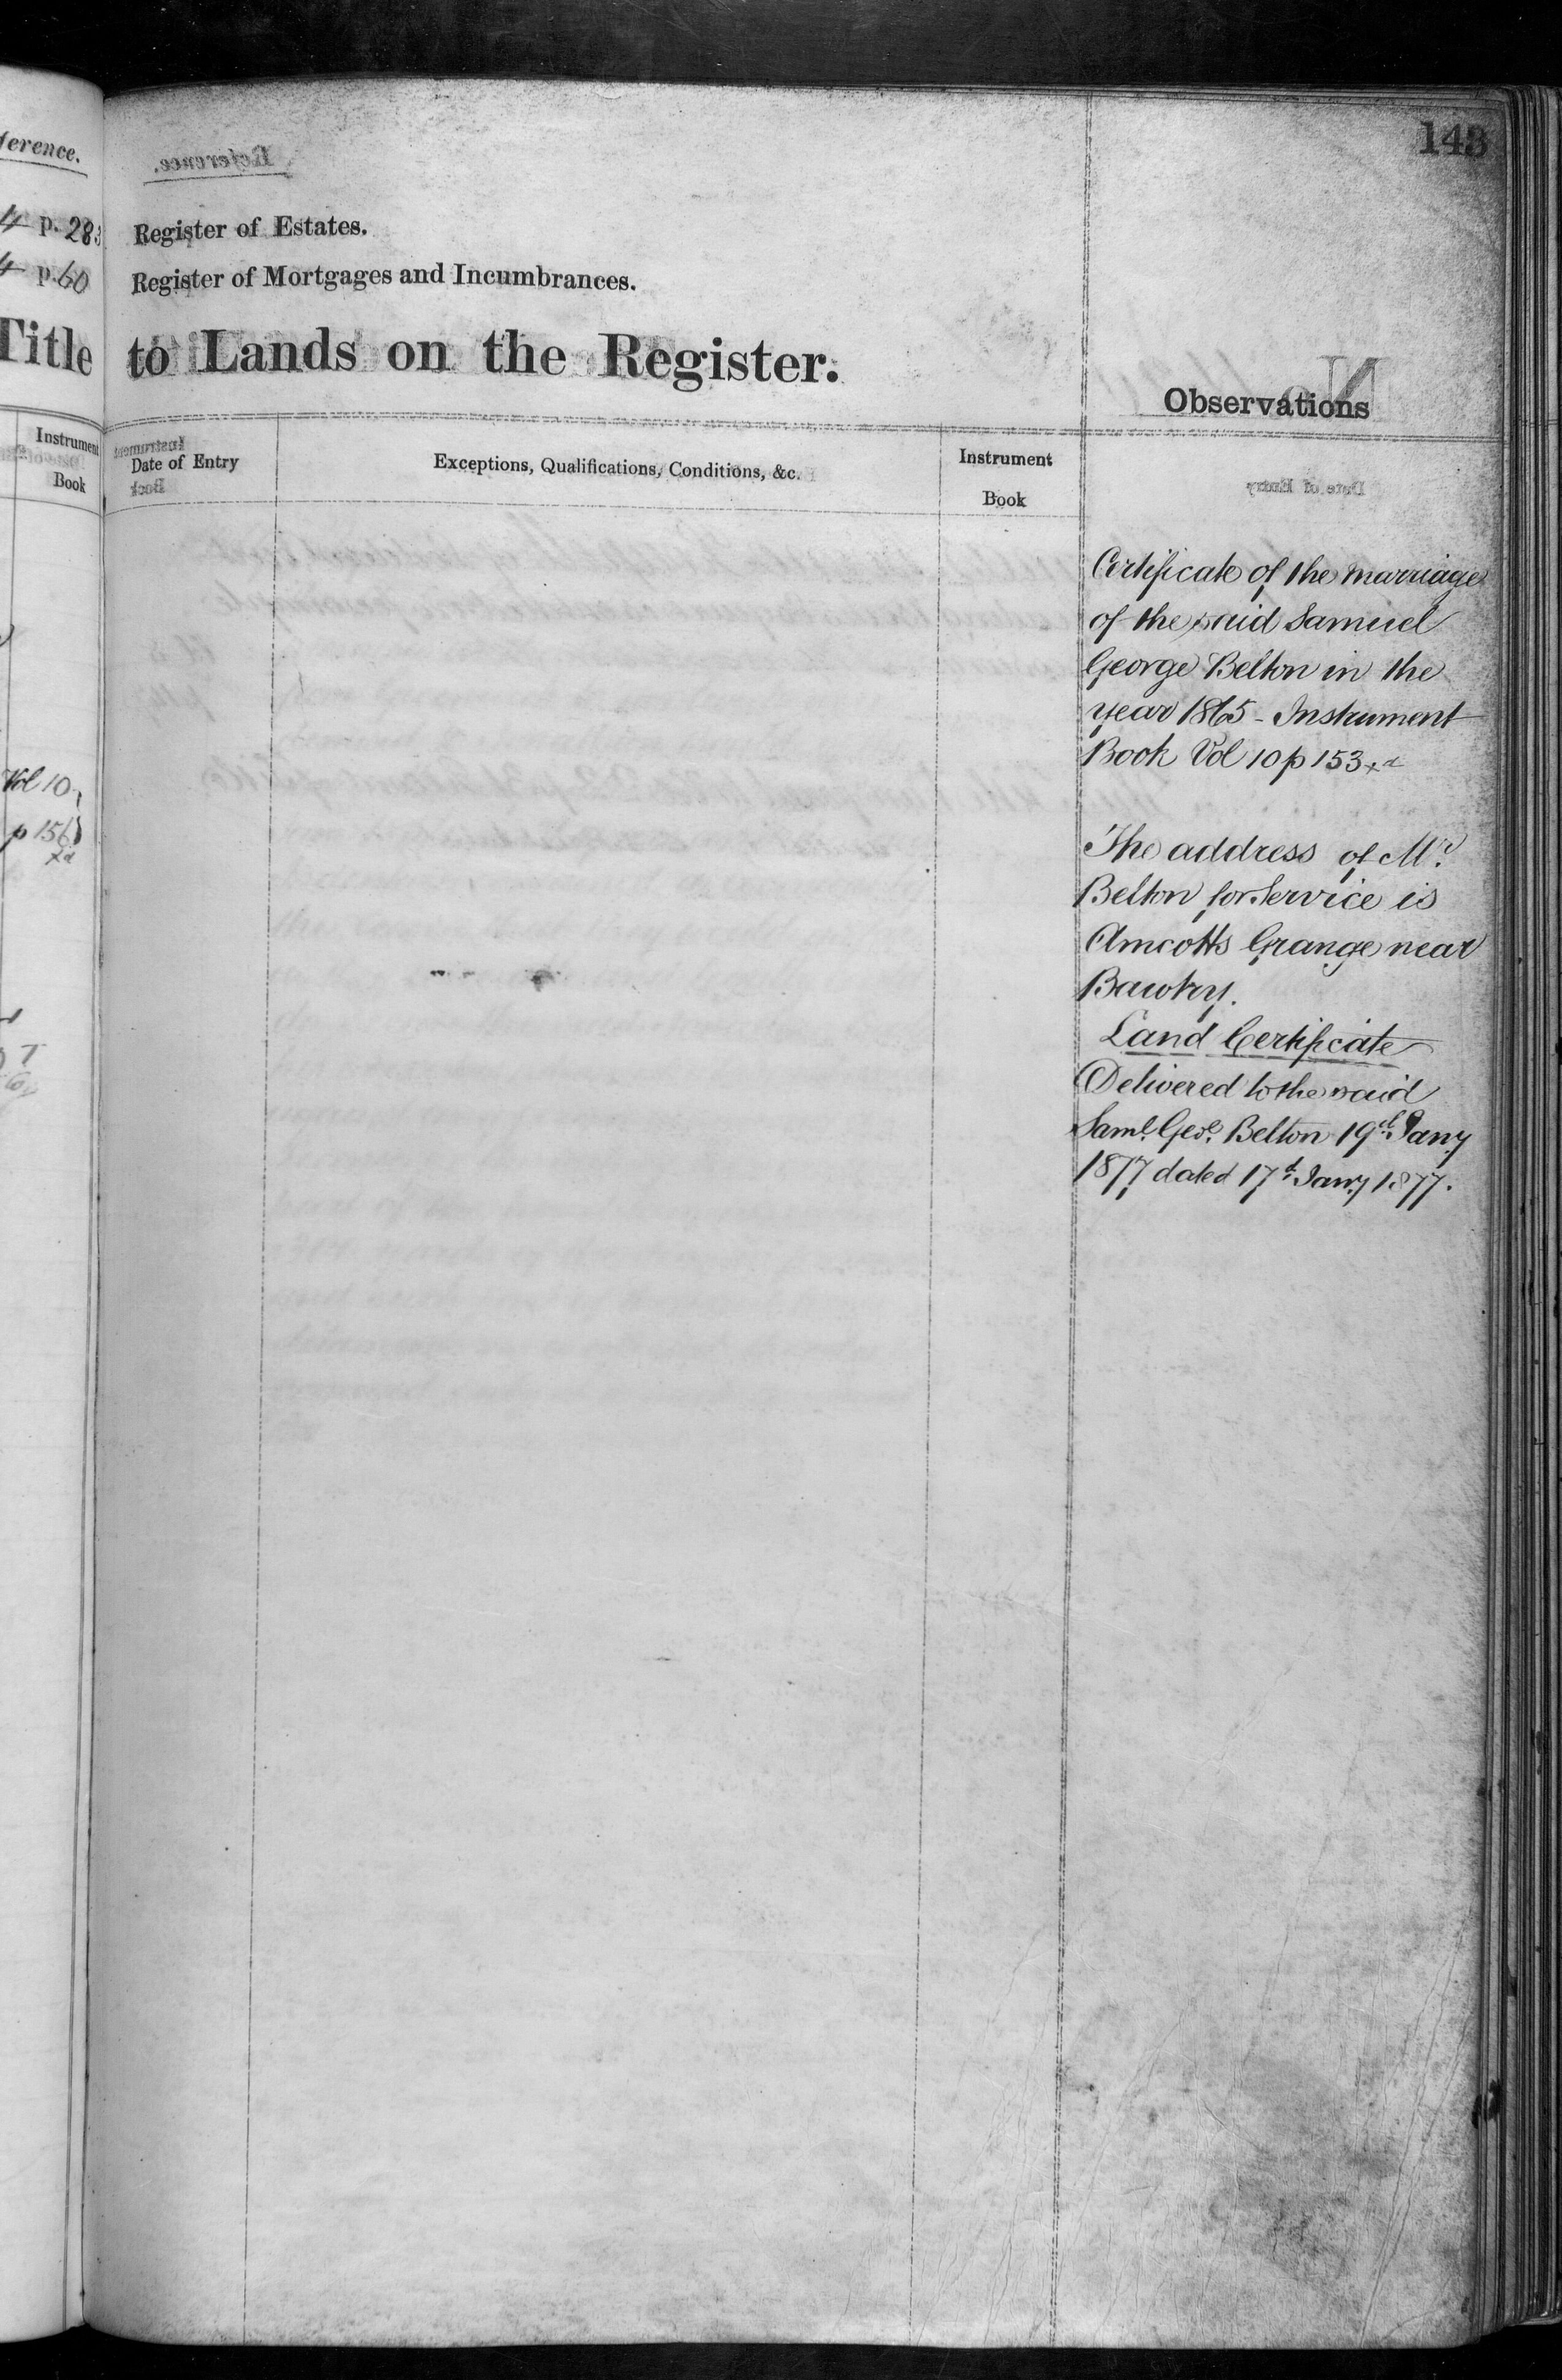 ference.
4 p. 283
4 p. 60
Title
Instrument
Book
Vol 10
p 156
xd
143
Register of Estates.
Register of Mortgages and Incumbrances.
to Lands on the Register.
Observations
Date of Entry
Exceptions, Qualifications, Conditions, &c.
Instrument
Book
Certificate of the marriage
of the said Samuel
George Belton in the
year 1865 - Instrument
Book Vol 10 p 153 xd
The address of Mr.
Belton for Service is
Amcotts Grange near
Bawtry.
Land Certificate
Delivered to the said
Saml. Geo. Belton 19th Jany
1877 dated 17th Jany 1877.